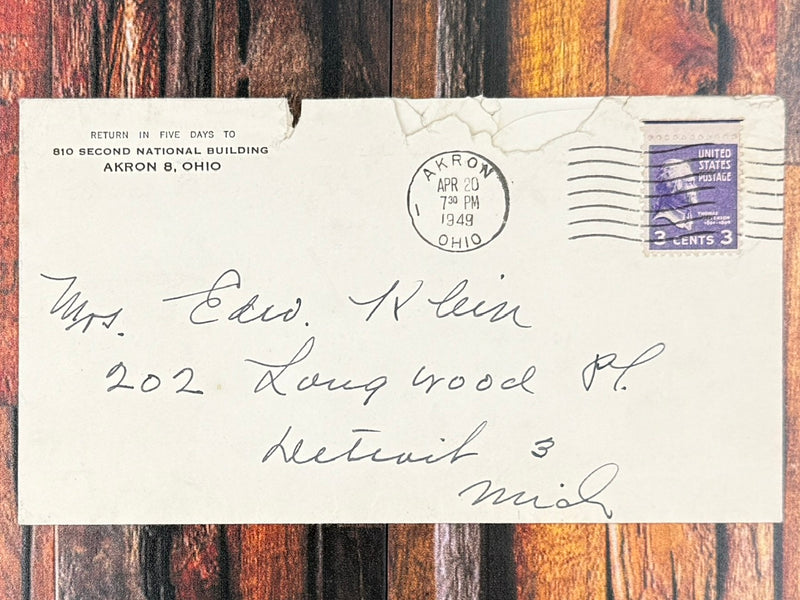 RETURN IN FIVE DAYS TO
810 SECOND NATIONAL BUILDING
AKRON 8, OHIO
AKRON
APR 20
7 30 PM
1949
1
OHIO
UNITED
STATES
POSTAGE
THOMAS
JEFFERSON
3 CENTS 3
Mrs. Edw. Klein
202 Longwood Pl.
Detroit 3
Mich